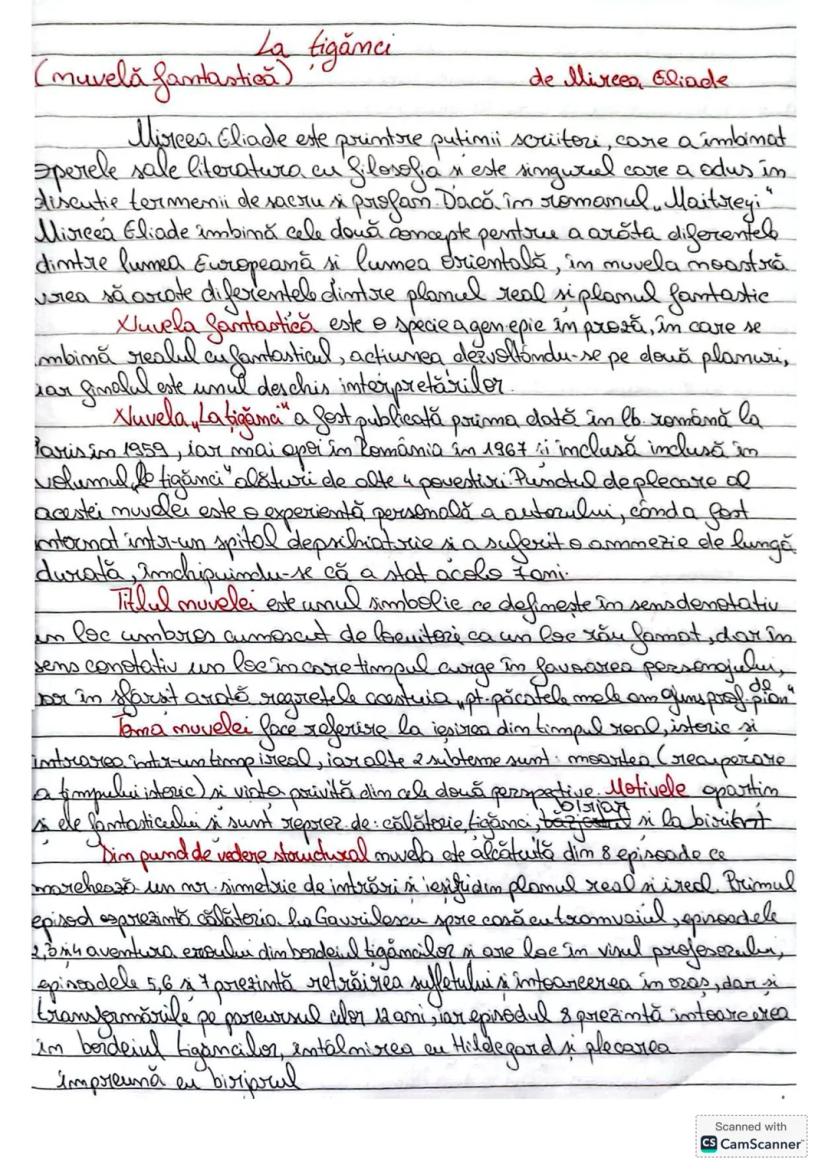 La țigănci
(nuvelă fantastică)
de Mircea Eliade
Mircea Eliade este printre puținii scriitori, care a îmbinat
operele sale literatura cu filosofia și este singurul care a adus în
discuție termenii de sacru și profan. Dacă în romanul „Maitreyi"
Mircea Eliade îmbină cele două concepte pentru a arăta diferențele
dintre lumea Europeană și lumea orientală, în nuvela noastră
vrea să arate diferențele dintre planul real și planul fantastic
Nuvela fantastică este o specie a gen epic în proză, în care se
îmbină realul cu fantasticul, acțiunea dezvoltându-se pe două planuri,
iar finalul este unul deschis interpretărilor.
Nuvela „La țigănci" a fost publicată prima dată în lb. română la
Paris în 1959, iar mai apoi în România în 1967 și inclusă inclusă în
volumul „La țigănci" alături de alte 4 povestiri. Punctul de plecare al
acestei nuvelei este o experiență personală a autorului, când a fost
internat într-un spital de psihiatrie și a suferit o amnezie de lungă
durată, închipuindu-se că a stat acolo 7 ani.
Titlul nuvelei este unul simbolic ce definește în sens denotativ
un loc umbros cunoscut de locuitori ca un loc rău famat, dar în
sens conotativ un loc în care timpul curge în favoarea personajului,
iar în sfârșit arată regretele acestuia „pt. păcatele mele am ajuns prof. de pian"
Tema nuvelei face referire la ieșirea din timpul real, istoric și
intrarea într-un timp ireal, iar alte 2 subteme sunt: moartea (recuperare
a timpului istoric) și viața privită din cele două perspective. Motivele aparțin
și ele fantasticului și sunt reprez. de: călătorie, țigănci, birjar și labirint
Din punct de vedere structural nuvela este alcătuită din 8 episoade ce
marchează un nr. simetric de intrări și ieșiri din planul real și ireal. Primul
episod reprezintă călătoria lui Gavrilescu spre casă cu tramvaiul, episoadele
2,3 și 4 aventura eroului din bordeiul țigăncilor și are loc în visul profesorului,
episoadele 5,6 și 7 prezintă retrăirea sufletului și întoarcerea în oraș, dar și
transformările pe parcursul celor 12 ani, iar episodul 8 prezintă întoarcerea
în bordeiul țigăncilor, întâlnirea cu Hildegard și plecarea
împreună cu birjarul
Scanned with
CS CamScanner